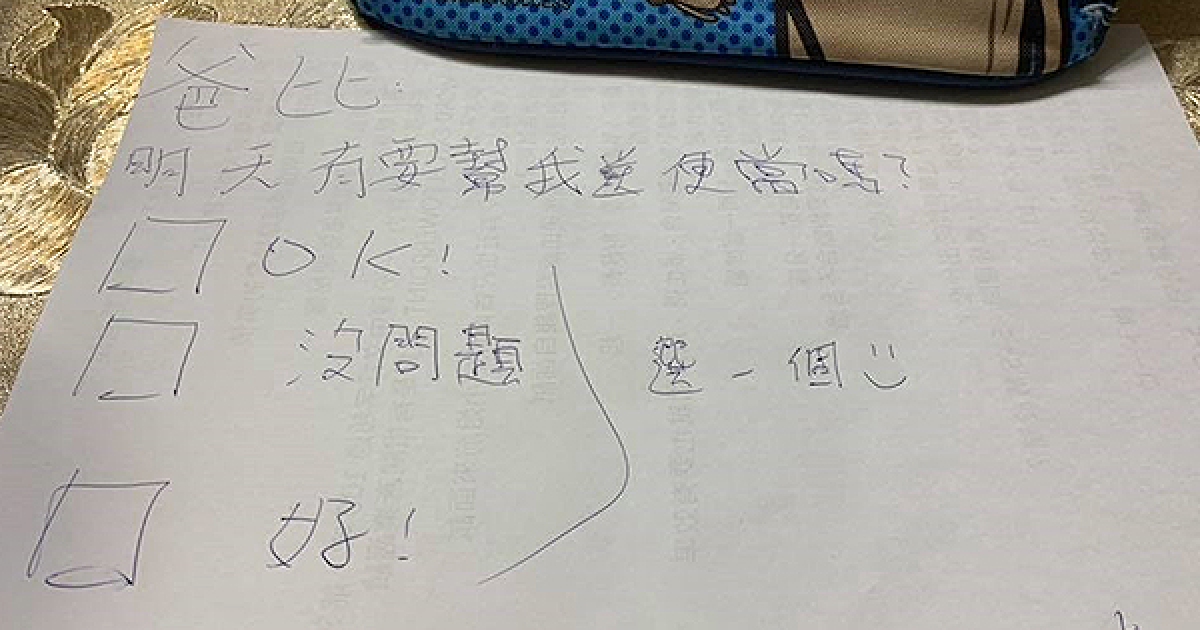 爸比:
明天有要幫我送便當嗎?
□ OK!
□ 沒問題
選一個:)
□ 好!